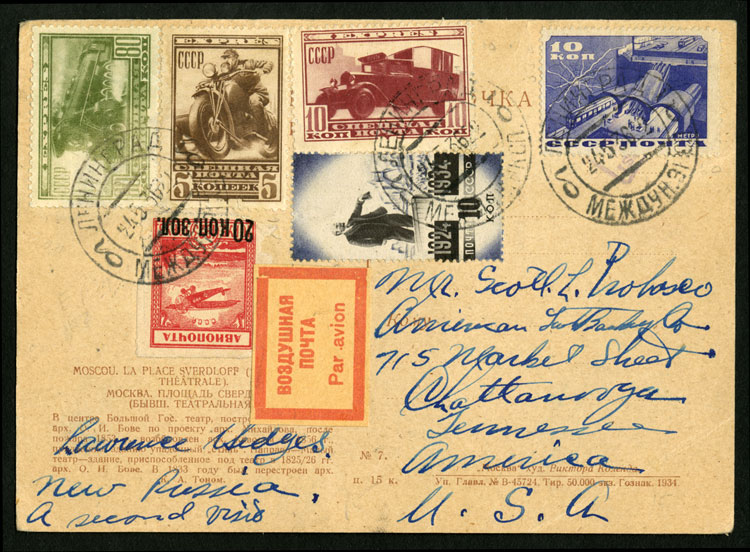 EXPRES
80
СПЕШНАЯ ПОЧТА
КОП
EXPRES
СССР
СПЕШНАЯ
ПОЧТА
5 КОПЕЕК 5
EXPRES
СССР
10 СПЕШНАЯ 10
КОП ПОЧТА КОП
10
КОП
МЕТРО
СССР ПОЧТА
ЧКА
1924 1934
ПОЧТА 10 КОП
СССР
ЛЕНИНГРАД
24.5.36
МЕЖДУН.
ЛЕНИНГРАД
МЕЖДУН.
20 КОП. ЗОЛ.
АВИОПОЧТА
ВОЗДУШНАЯ
ПОЧТА
Par avion
Mr. Scott L. Probasco
American
715 Market Street
Chattanooga
Tennessee
America
U. S. A
MOSCOU. LA PLACE SVERDLOFF (
THÉATRALE).
МОСКВА. ПЛОЩАДЬ СВЕРД
(БЫВШ. ТЕАТРАЛЬНАЯ
В центре Большой Гос. театр, постр
арх. И. Бове по проекту арх. Михайлова, после
театр—здание, приспособленное под театр в 1825/26 гг.
арх. О. И. Бове. В 1933 году был перестроен арх.
А. Тоном.
Lawrence Hedges.
New Russia,
A second visit
№ 7.
ц. 15 к.
Москва Худ. Виктора
Уп. Главл. № В-45724. Тир. 50.000 экз. Гознак. 1934